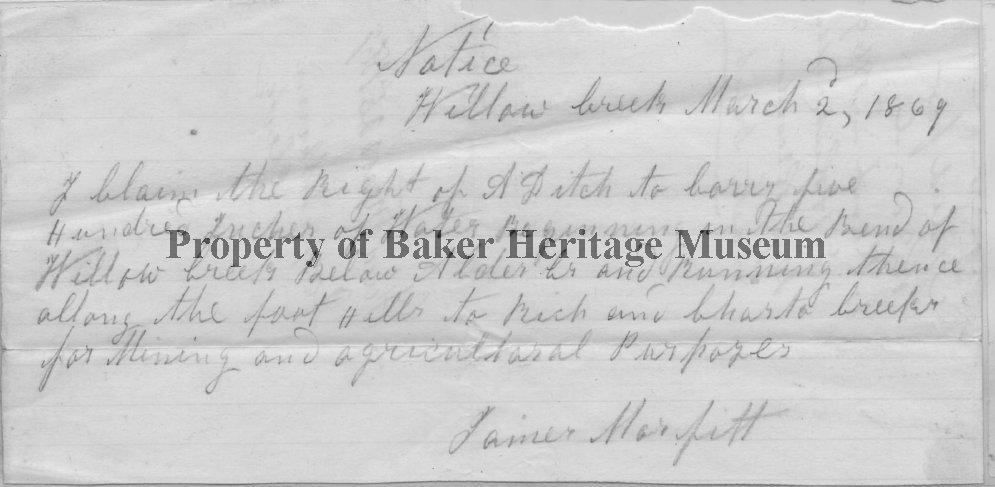 Notice
Willow Creek March 2d, 1869
I Claim the Right of A Ditch to Carry five
Hundred Inches of Water Beginning in the Bend of
Property of Baker Heritage Museum
Willow Creek Below Alder Cr and Running thence
allong the foot Hills to Rich and Creeks
for Mining and agricultural Purposes
James Morfitt